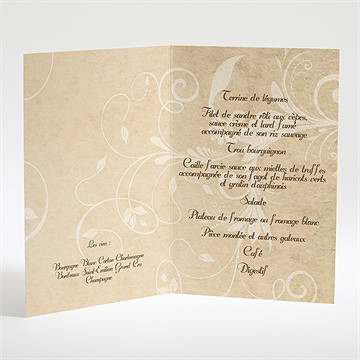 Les vins :
Bourgogne Blanc Corton Charlemagne
Bordeaux Saint-Emilion Grand Cru
Champagne
Terrine de légumes
Filet de sandre rôti aux cèpes,
sauce crème et lard fumé
accompagné de son riz sauvage
Trou bourguignon
Caille farcie sauce aux miettes de truffes
accompagnée de son fagot de haricots verts
et gratin dauphinois
Salade
Plateau de fromage ou fromage blanc
Pièce montée et autres gateaux
Café
Digestif